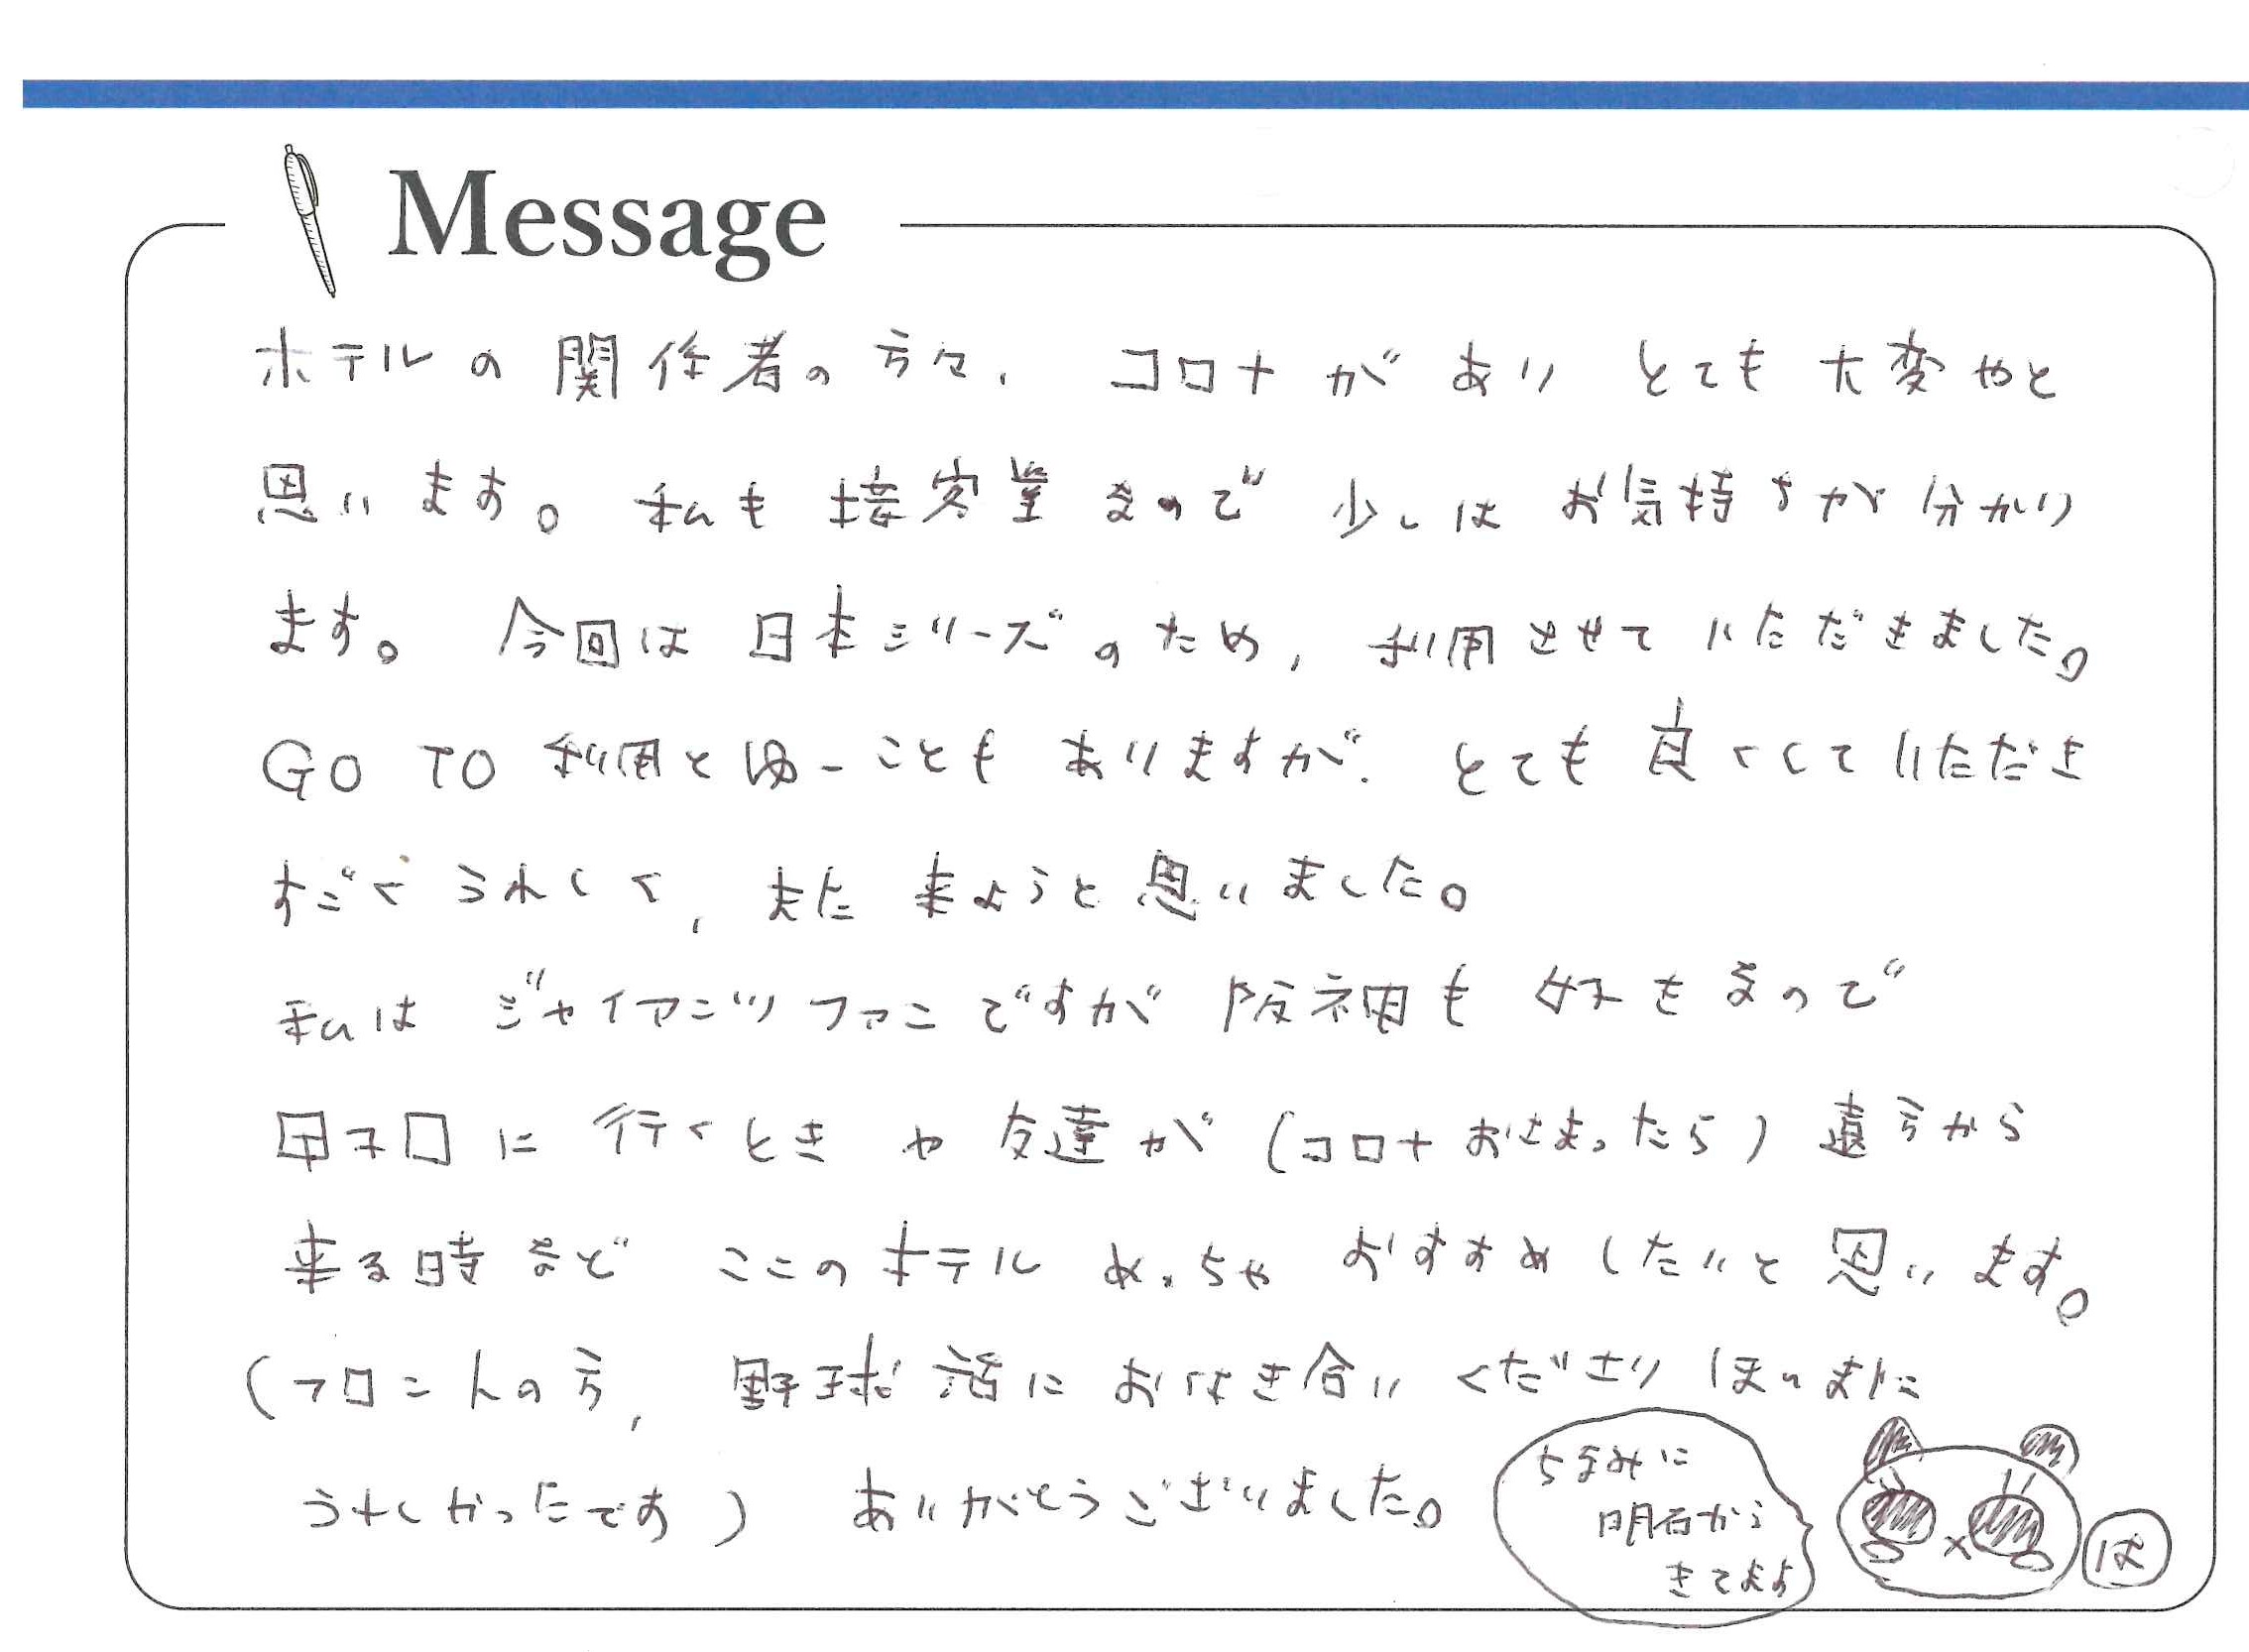 Message
ホテルの関係者の方々、コロナがありとても大変やと
思います。私も接客業なので少しはお気持ちが分かり
ます。今回は日本シリーズのため、利用させていただきました。
GO TO 利用とゆーこともありますが、とても良くしていただき
すごくうれしくて、また来ようと思いました。
私はジャイアンツファンですが阪神も好きなので
甲子園に行くときや友達が(コロナおさまったら)遠方から
来る時などここのホテルめっちゃおすすめしたいと思います。
(フロントの方、野球話にお付き合いくださりほんまに
うれしかったです)ありがとうございました。
ちなみに
明石から
きてます
は